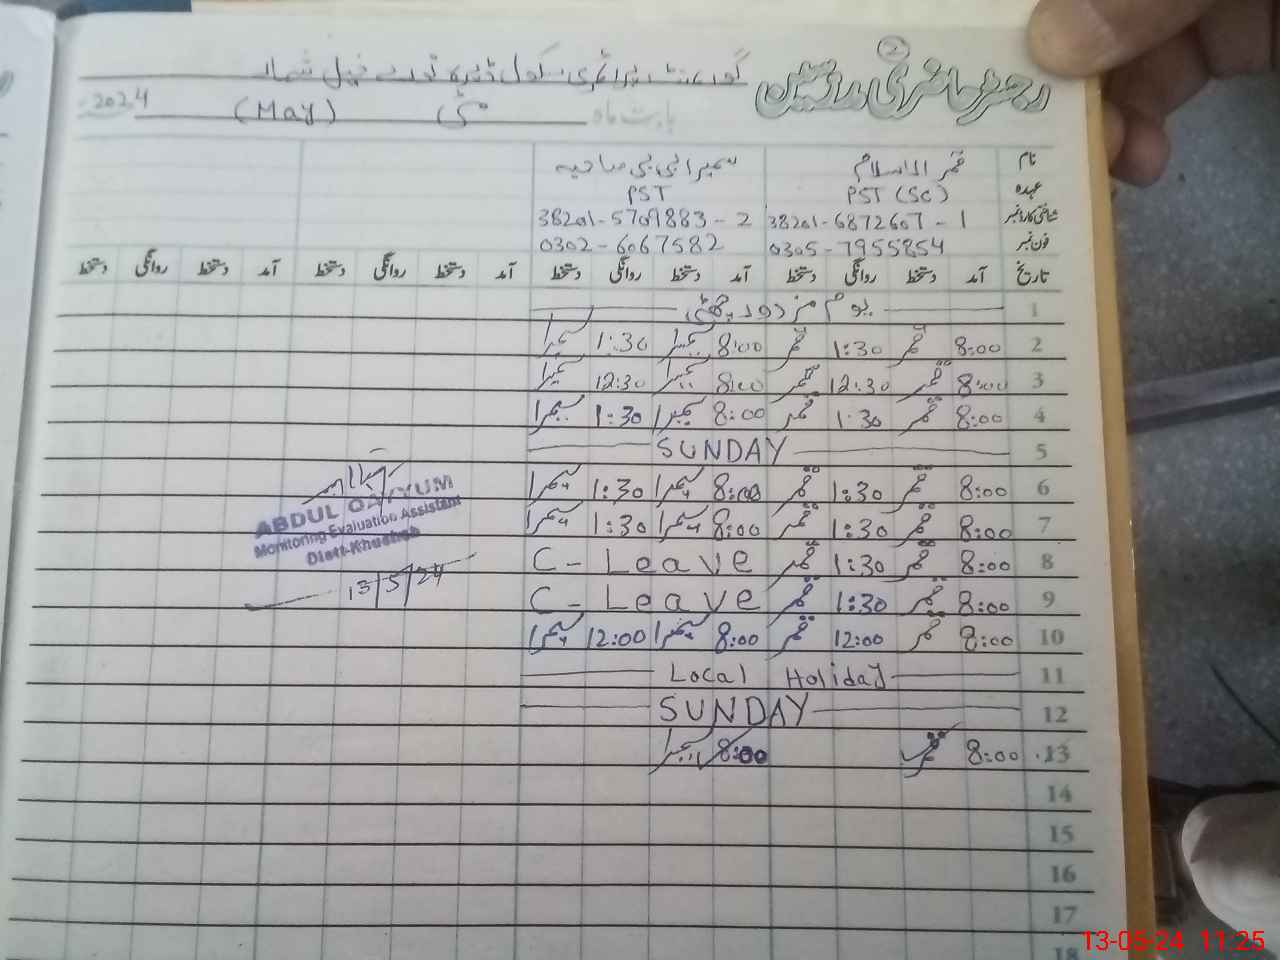 2
رجسٹر حاضری مدرسین
گورنمنٹ پرائمری سکول ڈیرہ نورے خیل شمالی
بابت ماہ مئی (May) 2024
نام قمر الاسلام سمیرا بی بی صاحبہ
عہدہ PST (SC) PST
شناختی کارڈ نمبر 38201-6872607-1 38201-5709883-2
فون نمبر 0305-7955854 0302-6067582
تاریخ آمد دستخط روانگی دستخط آمد دستخط روانگی دستخط آمد دستخط روانگی دستخط آمد دستخط روانگی دستخط
1 یوم مزدور چھٹی
2 8:00 قمر 1:30 قمر 8:00 سمیرا 1:30 سمیرا
3 8:00 قمر 12:30 قمر 8:00 سمیرا 12:30 سمیرا
4 8:00 قمر 1:30 قمر 8:00 سمیرا 1:30 سمیرا
5 SUNDAY
6 8:00 قمر 1:30 قمر 8:00 سمیرا 1:30 سمیرا
7 8:00 قمر 1:30 قمر 8:00 سمیرا 1:30 سمیرا
8 8:00 قمر 1:30 قمر C-Leave
9 8:00 قمر 1:30 قمر C-Leave
10 8:00 قمر 12:00 قمر 8:00 سمیرا 12:00 سمیرا
11 Local Holiday
12 SUNDAY
13 8:00 قمر 8:00 سمیرا
14
15
16
17
18
ABDUL QAYYUM
Monitoring Evaluation Assistant
Distt-Khushab
13/5/24
13-05-24 11:25